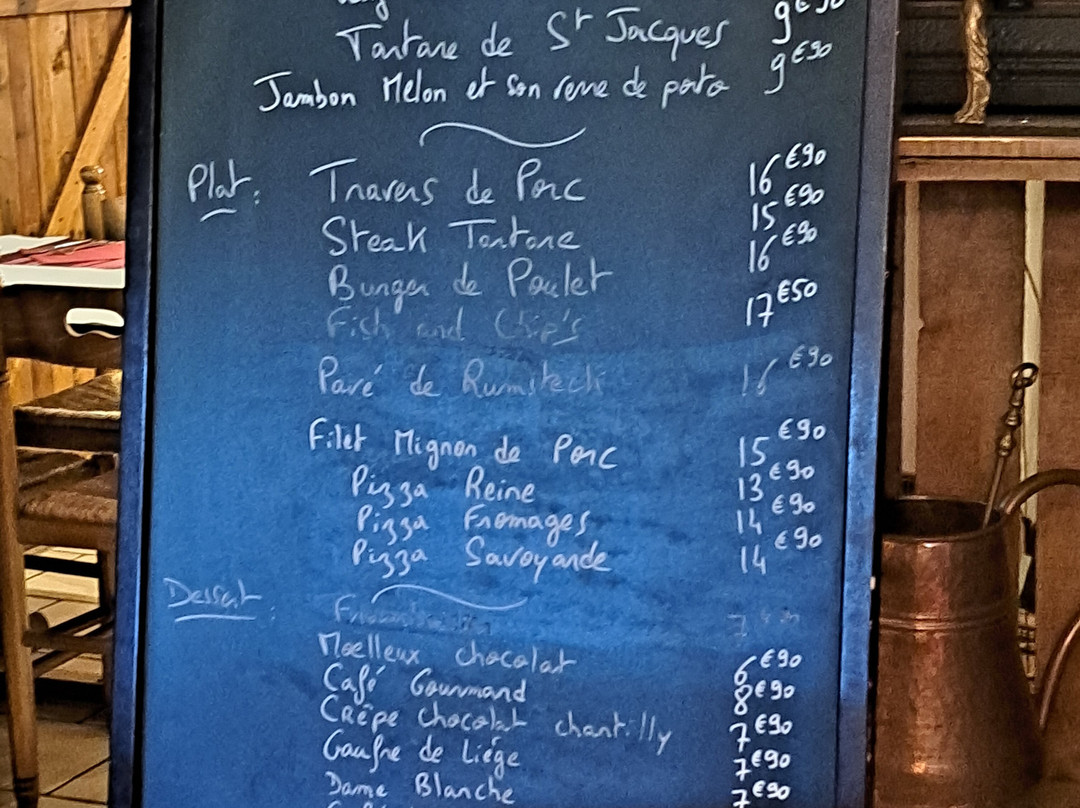 Tartare de St Jacques 9€90
Jambon Melon et son verre de porto 9€90
Plat: Travers de Porc 16€90
Steak Tartare 15€90
Burger de Poulet 16€90
Fish and Chip's 17€50
Pavé de Rumsteck 16€90
Filet Mignon de Porc 15€90
Pizza Reine 13€90
Pizza Fromages 14€90
Pizza Savoyarde 14€90
Dessert:
Moelleux chocolat 6€90
Café Gourmand 8€90
Crêpe chocolat chantilly 7€90
Gaufre de Liège 7€90
Dame Blanche 7€90